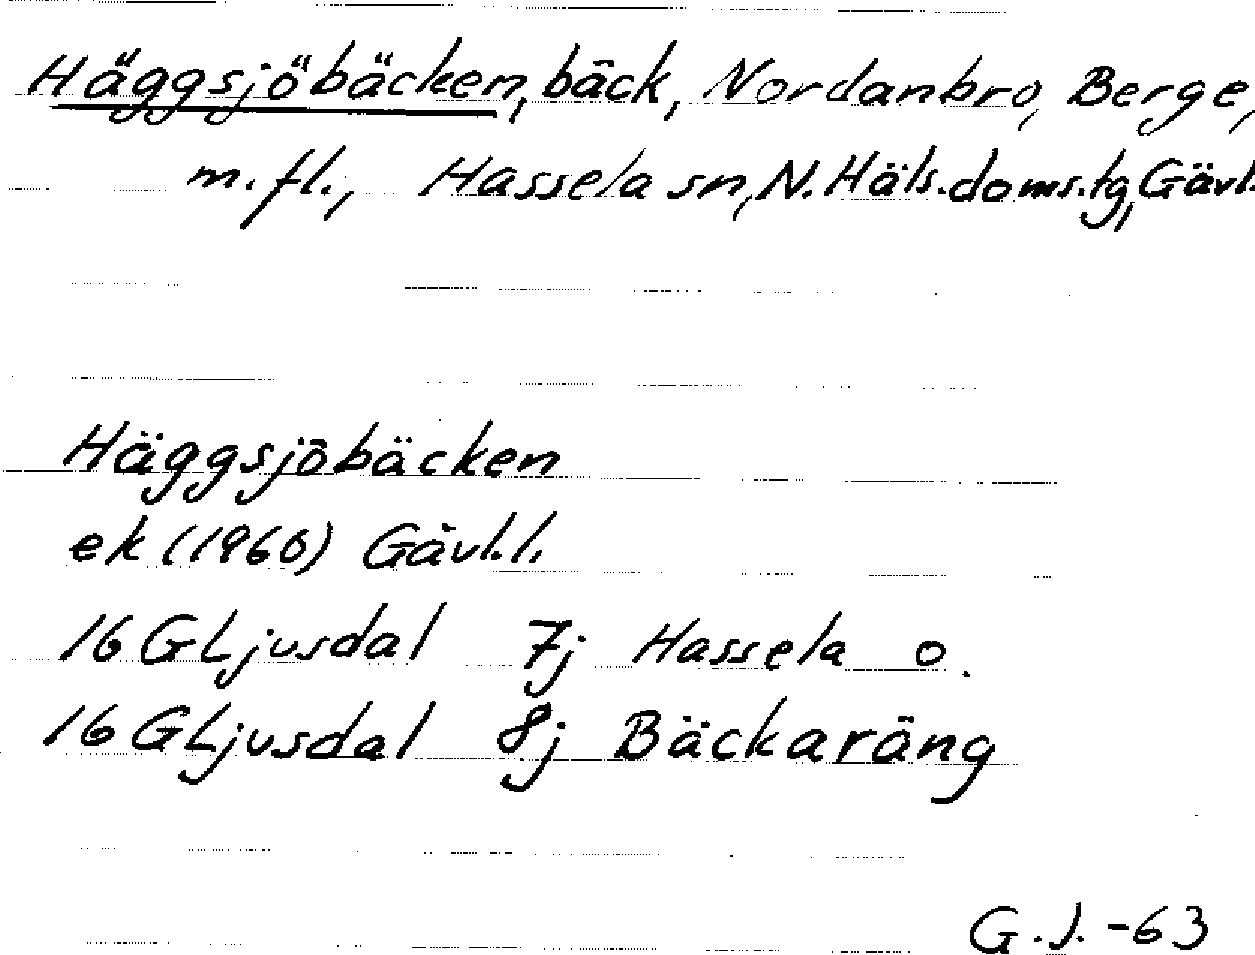 Häggsjöbäcken, bäck, Nordanbro, Berge,
m.fl., Hassela sn, N.Häls.doms.tg, Gävl.
Häggsjöbäcken
ek (1960) Gävl.l.
16 G Ljusdal 7j Hassela o.
16 G Ljusdal 8j Bäckaräng
G.J.-63